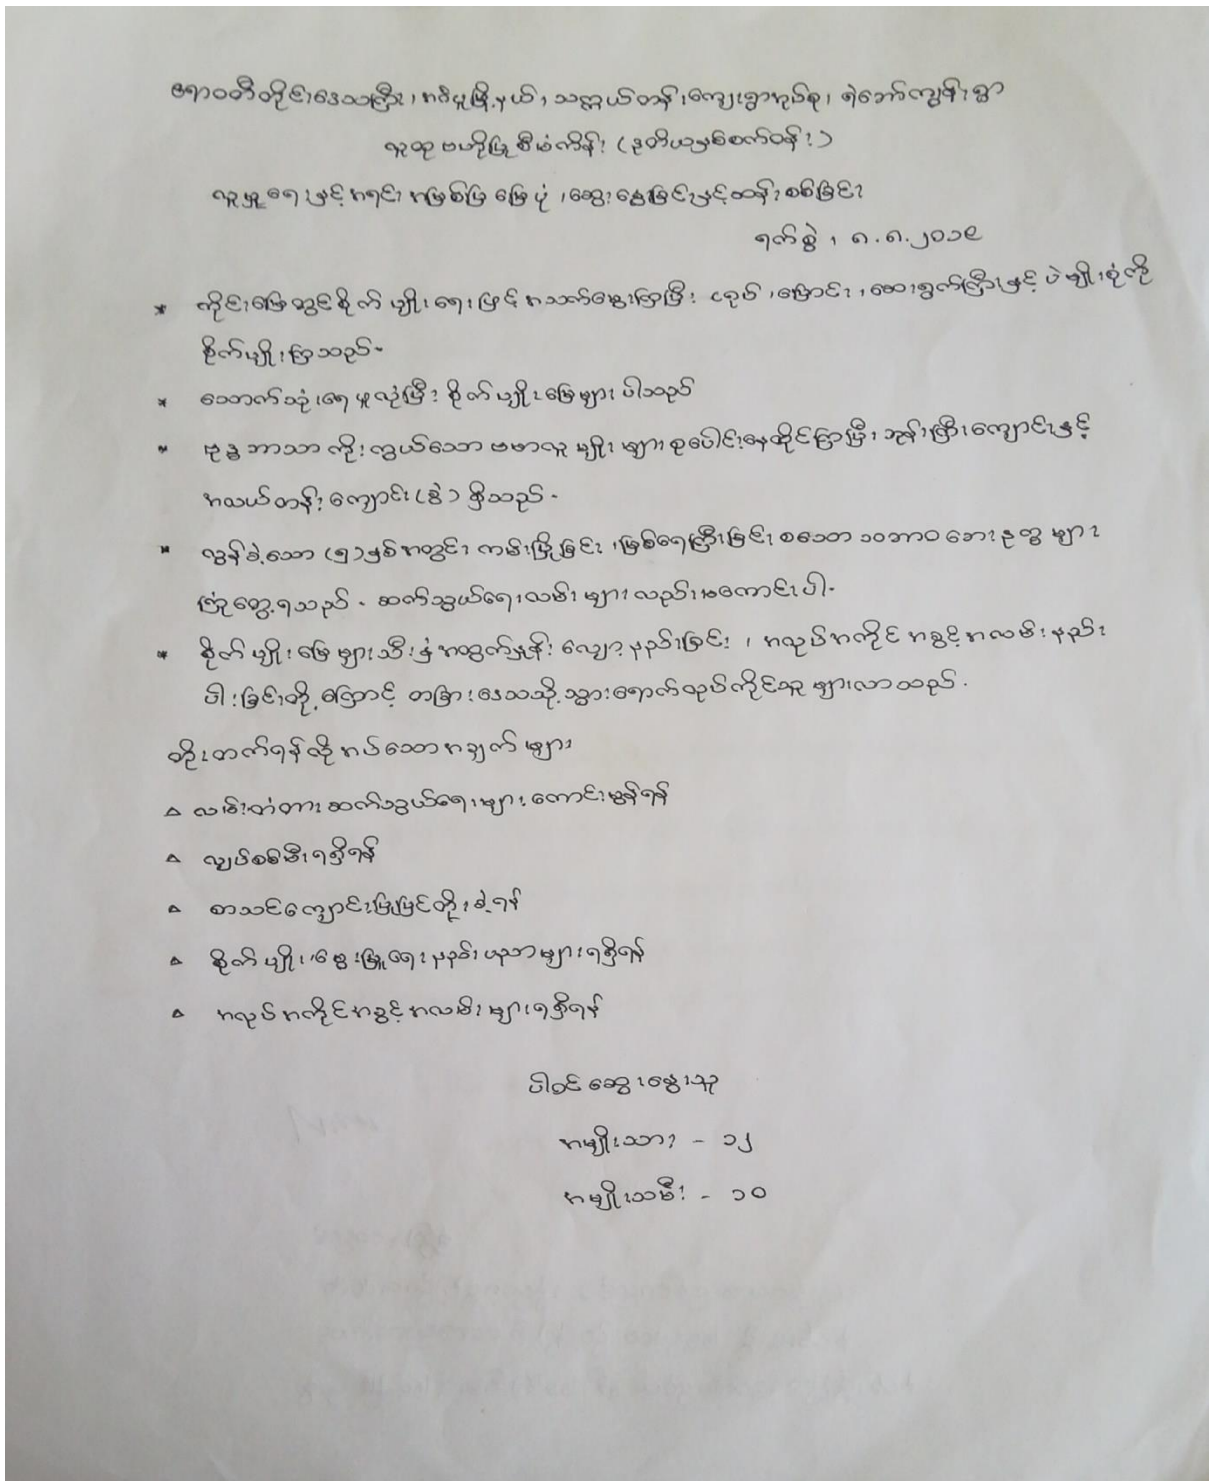 ဧရာဝတီတိုင်းဒေသကြီး ၊ အင်္ဂပူမြို့နယ် ၊ သက္ကယ်တန်းကျေးရွာအုပ်စု ၊ ရဲဘော်ကျွန်းရွာ
လူထုဗဟိုပြုစီမံကိန်း (ဒုတိယနှစ်စက်ဝန်း)
လူမှုရေးနှင့်အရင်းအမြစ်ပြမြေပုံ ၊ ဆွေးနွေးခြင်းနှင့်ဆန်းစစ်ခြင်း
ရက်စွဲ ၊ ၈.၈.၂၀၁၉
* ကိုင်းမြေတွင်စိုက်ပျိုးရေးဖြင့်အသက်မွေးကြပြီး ငရုပ် ၊ ပြောင်း ၊ ဆေးရွက်ကြီးနှင့် ပဲမျိုးစုံကို
စိုက်ပျိုးကြသည်-
* သောက်သုံးရေဖူလုံပြီး စိုက်ပျိုးမြေများ ပါသည်
* ဗုဒ္ဓဘာသာကိုးကွယ်သော ဗမာလူမျိုးများစုပေါင်းနေထိုင်ကြပြီး ဘုန်းကြီးကျောင်းနှင့်
အလယ်တန်းကျောင်း (ခွဲ) ရှိသည်-
* လွန်ခဲ့သော (၅)နှစ်အတွင်း ကမ်းပြိုခြင်း ၊ မြစ်ရေကြီးခြင်း စသော သဘာဝဘေးဒုက္ခများ
ကြုံတွေ့ရသည်- ဆက်သွယ်ရေးလမ်းများလည်းမကောင်းပါ-
* စိုက်ပျိုးမြေများသီးနှံအထွက်နှုန်းလျော့နည်းခြင်း ၊ အလုပ်အကိုင်အခွင့်အလမ်းနည်း
ပါးခြင်းတို့ကြောင့် တခြားဒေသသို့သွားရောက်လုပ်ကိုင်သူများလာသည်-
တိုးတက်ရန်လိုအပ်သောအချက်များ
△ လမ်းတံတားဆက်သွယ်ရေးများကောင်းမွန်ရန်
△ လျှပ်စစ်မီးရရှိရန်
△ စာသင်ကျောင်းပြုပြင်တိုးချဲ့ရန်
△ စိုက်ပျိုး၊မွေးမြူရေးနည်းပညာများရရှိရန်
△ အလုပ်အကိုင်အခွင့်အလမ်းများရရှိရန်
ပါဝင်ဆွေးနွေးသူ
အမျိုးသား - ၁၂
အမျိုးသမီး - ၁၀